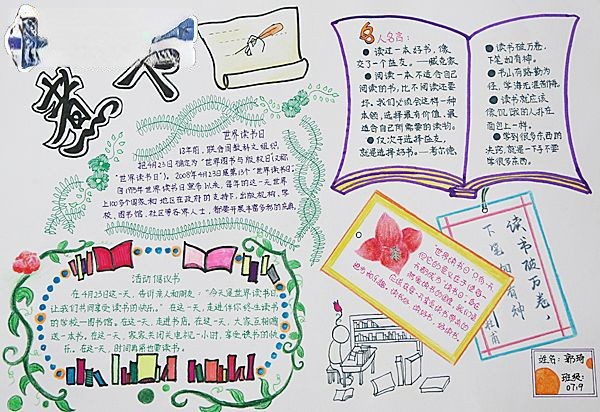 世界读书日
13年前，联合国教科文组织
把4月23日确定为“世界图书与版权日（又称
“世界读书日）。2008年4月23日是第13个“世界读书日。
自1995年世界读书日宣布以来，每年的这一天世界
上100多个国家和地区在政府的支持下，出版机构、学
校、图书馆、社区等各界人士，都要开展丰富多彩的庆典
名人名言：
读过一本好书，像
交了一个益友。——臧克家
阅读一本不适合自己
阅读的书，比不阅读还要
坏。我们必须会这样一种
本领，选择最有价值、最
适合自己所需要的读物。
仅次于选择益友，
就是选择好书。——考尔德
读书破万卷，
下笔如有神。
书山有路勤为
径，学海无涯
读书就应该
像
面包上一样。
学到很多东西的
决窍，就是一下子不要
学很多东西。
活动倡议书
在4月23日这一天，告诉亲人和朋友：“今天是世界读书日，
让我们共同享受读书的快乐。”在这一天，走进伴你终生读书
的学校—图书馆。在这一天，走进书店。在这一天，大家互相赠
送一本书。在这一天，家家关闭电视机一小时，享受读书的快
乐。在这一天，时间再紧也要读书。
读书破万卷，
下笔如有神
姓名：郭琦
班级：
0719